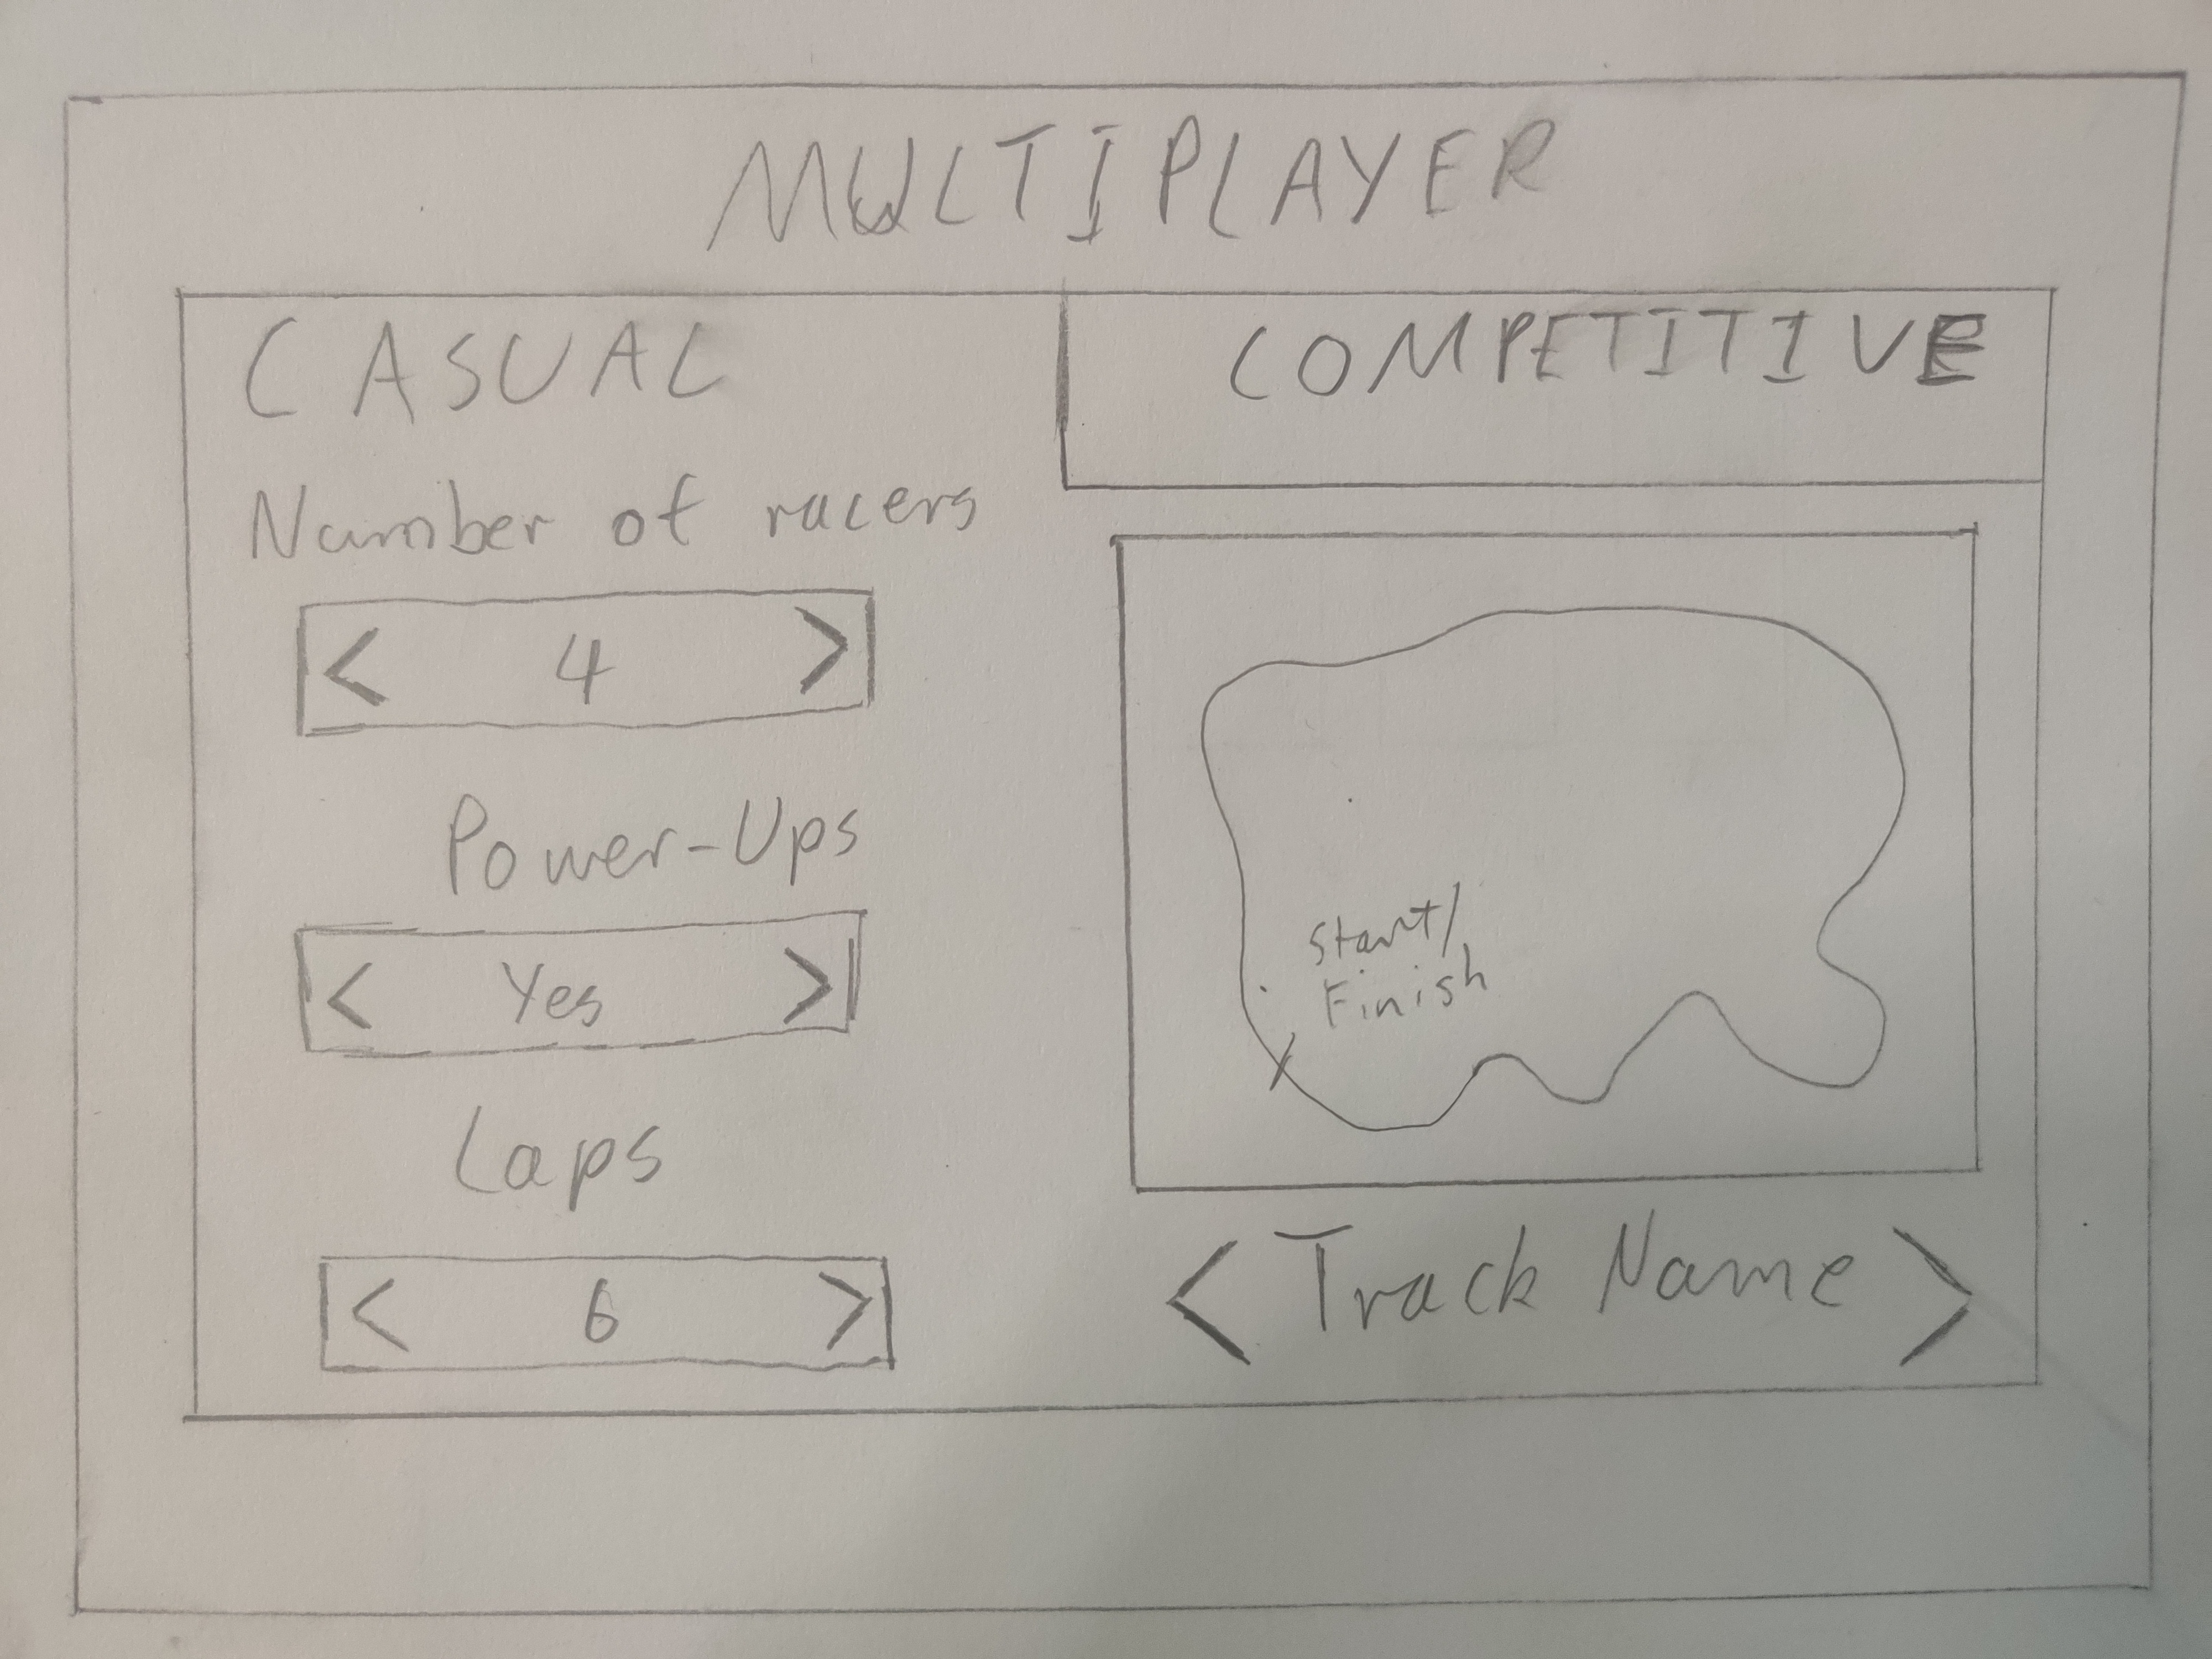 MULTIPLAYER
CASUAL
COMPETITIVE
Number of racers
< 4 >
Power-Ups
< Yes >
Laps
< 6 >
Start/
Finish
< Track Name >